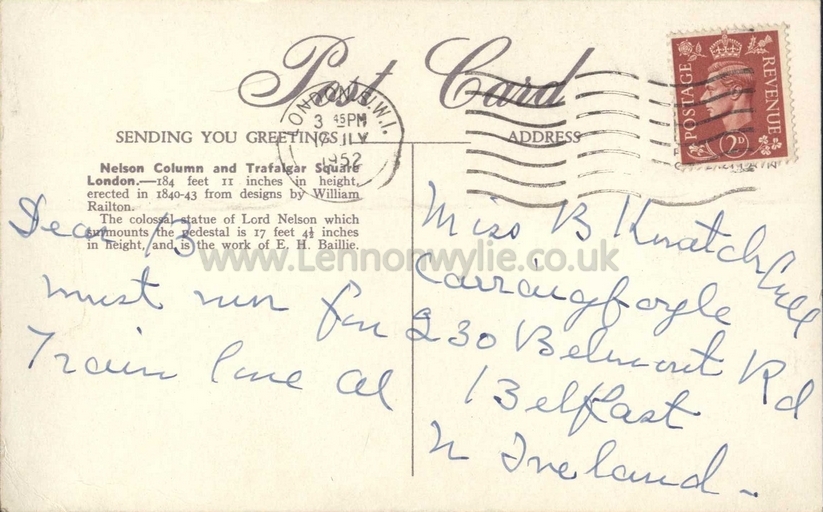 Post Card
LONDON S.W.1.
3 45PM
JLY
1952
POSTAGE
REVENUE
2D
SENDING YOU GREETINGS
ADDRESS
Nelson Column and Trafalgar Square
London.—184 feet 11 inches in height,
erected in 1840-43 from designs by William
Railton.
The colossal statue of Lord Nelson which
surmounts the pedestal is 17 feet 4½ inches
in height, and is the work of E. H. Baillie.
www.Lennonwylie.co.uk
Dear B
must run for
Train love Al
Miss B Knatchbull
Carraigfoyle
230 Belmont Rd
Belfast
N Ireland -